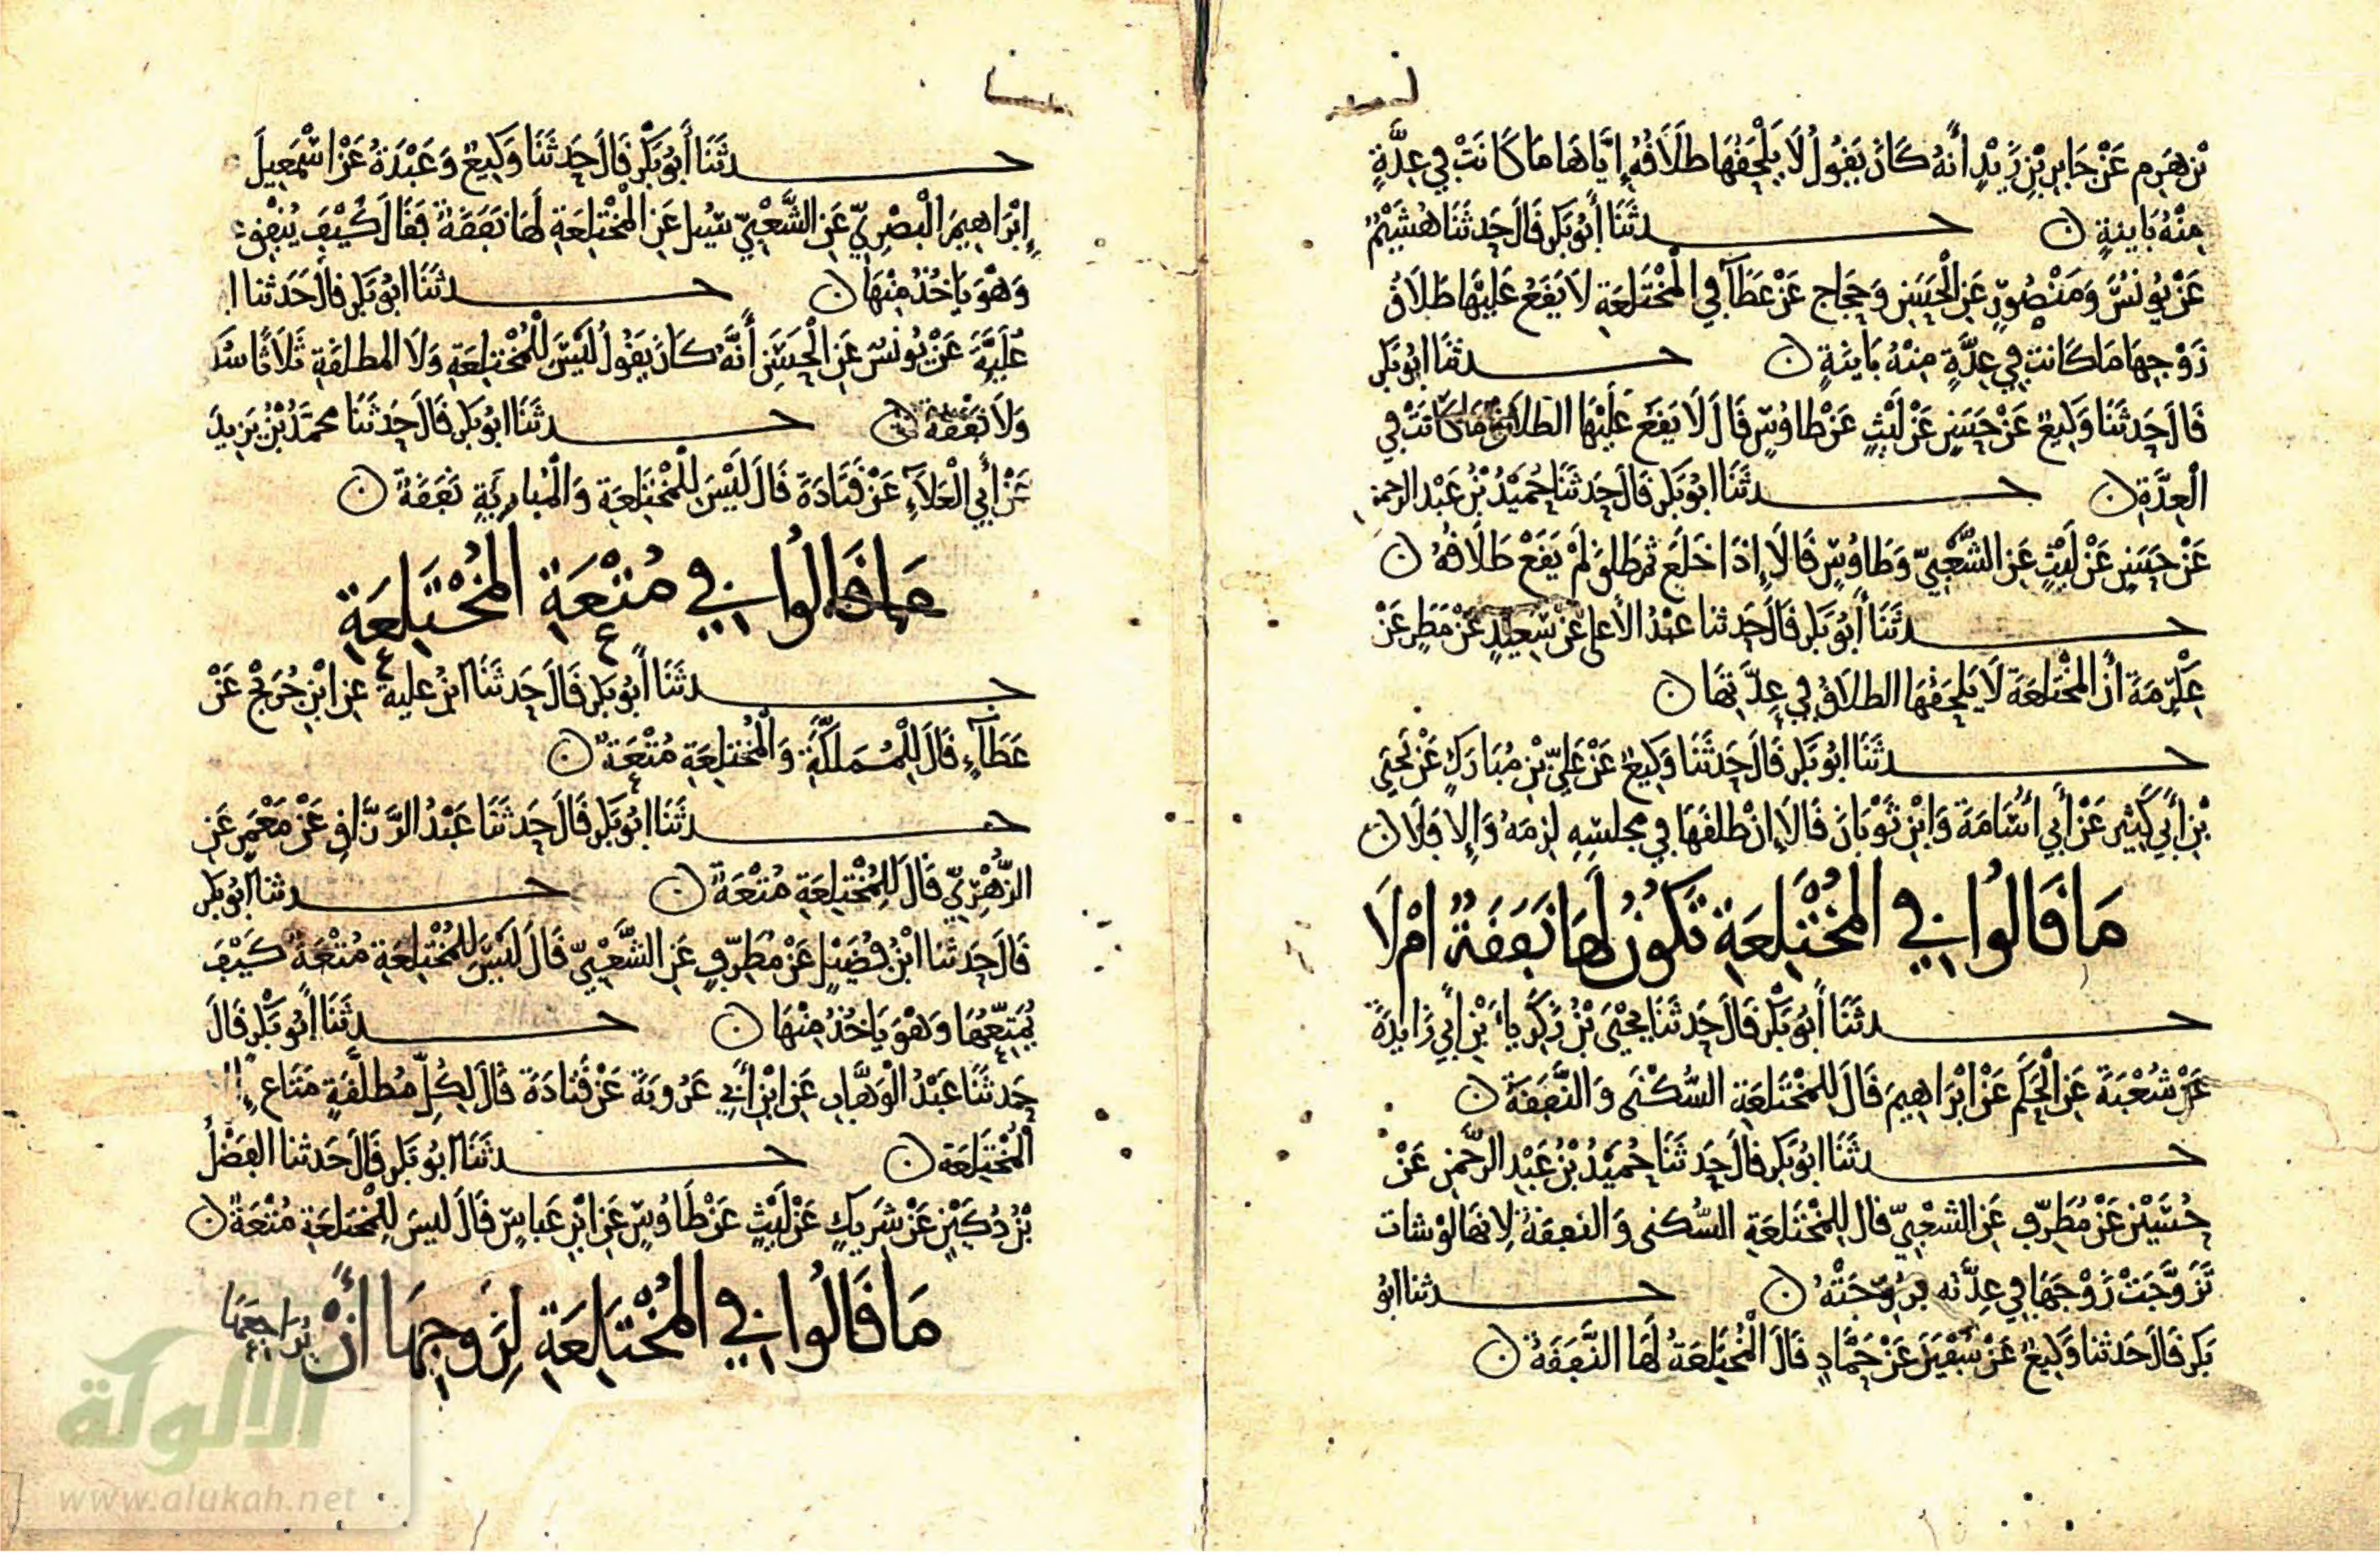 بْنِ هَرِمٍ عَنْ جَابِرِ بْنِ زَيْدٍ أَنَّهُ كَانَ يَقُولُ لَا يَلْحَقُهَا طَلَاقُهُ إِيَّاهَا مَا كَانَتْ فِي عِدَّةٍ
مِنْهُ بَايِنَةٍ ن حدثَنَا أَبُو بَكْرٍ قَالَ حَدثَنَا هُشَيْمٌ
عَنْ يُونُسَ وَمَنْصُورٍ عَنِ الْحَسَنِ وَحَجَّاج عَنْ عَطَآ فِي الْمُخْتَلِعَةِ لَا يَقَعُ عَلَيْهَا طَلَاقُ
زَوْجِهَا مَا كَانت فِي عِدَّةٍ مِنْهُ بَايِنَةٍ ن حدثنَا ابُو بَكْرٍ
قَالَ حَدثَنَا وَكِيعٌ عَنْ حَسَنٍ عَنْ لَيْثٍ عَنْ طَاوُسٍ قَالَ لَا يَقَعُ عَلَيْهَا الطلَاق مَا كَانَتْ فِي
الْعِدَّةِ ن حدثَنَا ابُو بَكْرٍ قَالَ حَدثَنَا حُمَيْدُ بْنُ عَبْد الرحمن
عَنْ حَسَنٍ عَنْ لَيْثٍ عَنِ الشَّعْبِيِّ وَطَاوُسٍ قَالَا إِذَا خَلَعَ ثُمَّ طَلقَ لَمْ يَقَعْ طَلَاقُهُ ن
حدثَنَا أَبُو بَكْرٍ قَالَ حَدثنا عَبْدُ الأعلى عَنْ سَعِيدٍ عَنْ مَطَرٍ عَنْ
عِكْرِمَةَ أَنَّ الْمُخْتَلِعَةَ لَا يَلْحَقُهَا الطلَاقُ فِي عِدَّتِهَا ن
حدثَنَا ابُو بَكْرٍ قَالَ حَدثَنَا وَكِيعٌ عَنْ عَلِيِّ بْنِ مُبَارَكٍ عَنْ يَحْيَى
بْنِ أَبِي كَثِيرٍ عَنْ أَبِي أُسَامَةَ وَابْنِ ثَوْبَانَ قَالَا إِنْ طَلقَهَا فِي مجلسِهِ لزِمَهُ وَإِلا فَلَا ن
مَا قَالُوا فِي الْمُخْتَلِعَةِ تَكُونُ لَهَا نَفَقَةٌ امْ لَا
حدثَنَا أَبُو بَكْرٍ قَالَ حَدثَنَا يَحْيَى بْنُ زَكَرِيا بْنِ أَبِي زَايِدَةَ
عَنْ شُعْبَةَ عَنِ الْحَكَمِ عَنْ ابْرَاهِيمَ قَالَ لِلْمُخْتَلِعَةِ السُّكْنَى وَالنَّفَقَةُ ن
حدثَنَا ابُو بَكْرٍ قَالَ حَدثَنَا حُمَيْدُ بْنُ عَبْدِ الرَّحْمَنِ عَنْ
حُسَيْنٍ عَنْ مُطَرِّفٍ عَنِ الشَّعْبِيِّ قَالَ لِلْمُخْتَلِعَةِ السُّكنى وَالنفقَةُ لانهَا لوْ شات
تَزَوَّجَتْ زَوْجَهَا فِي عِدَّته تزوجَتْهُ ن حدثنا ابُو
بَكرٍ قَالَ حَدثنا وَكِيعٌ عَنْ سُفْيَنَ عَنْ حَمَّادٍ قَالَ الْمُخْتَلِعَةُ لَهَا النَّفَقَةُ ن
حدثَنَا أَبُو بَكْرٍ قَالَ حَدثَنَا وَكِيعٌ وَعَبْدَةُ عَنْ اسْمَعِيلَ
إِبْرَاهِيمَ الْبَصْرِيِّ عَنِ الشَّعْبِيِّ سُيلَ عَنِ الْمُخْتَلِعَةِ لَهَا نَفَقَةٌ فَقَالَ كَيْفَ يُنْفِق
وَهْوَ يَاخُذُ مِنْهَا ن حدثَنَا ابُو بَكْرٍ قَالَ حَدثنا ا
عُلَيَّةَ عَنْ يُونُسَ عَنِ الْحَسَنِ أَنَّهُ كَانَ يَقُولُ لَيْسَ لِلْمُخْتَلِعَةِ وَلَا المطلقَةِ ثَلَاثًا سُكـ
وَلَا نَفَقَةٌ ن حدثَنَا ابُو بَكْرٍ قَالَ حَدثَنَا محمَّدُ بْنُ يَزِيدَ
عَنْ أَبِي الْعَلَآءِ عَنْ قَتَادَةَ قَالَ لَيْسَ لِلْمُخْتَلِعَةِ وَالْمُبارِيَةِ نَفَقَةٌ ن
مَا قَالُوا فِي مُتْعَةِ الْمُخْتَلِعَةِ
حدثَنَا أَبُو بَكْرٍ قَالَ حَدثَنَا ابْنُ علية عَنِ ابْنِ جُرَيْجٍ عَنْ
عَطَآءٍ قَالَ لِلْمُمَلَّكَةِ وَالْمُخْتَلِعَةِ مُتْعَةٌ ن
حدثَنَا ابُو بَكْرٍ قَالَ حَدثَنَا عَبْدُ الرَّزَّاقِ عَنْ مَعْمَرٍ عَنِ
الزُّهْرِيِّ قَالَ لِلْمُخْتَلِعَةِ مُتْعَةٌ ن حدثنا ابُو بَكر
قَالَ حَدثنا ابْنُ فُضَيْلٍ عَنْ مُطَرِّفٍ عَنِ الشَّعْبِيِّ قَالَ لَيْسَ لِلْمُخْتَلِعَةِ مُتْعَةٌ كَيْفَ
يُمَتِّعُهَا وَهْوَ يَاخُذُ مِنْهَا ن حدثَنَا أَبُو بَكْرٍ قَالَ
حَدثَنَا عَبْدُ الْوَهَّابِ عَنِ ابْنِ أَبِي عَرُوبَةَ عَنْ قَتَادَةَ قَالَ لِكُلِّ مُطلَّقَةٍ مَتَاعٌ إلا
الْمُخْتَلِعَة ن حدثَنَا ابُو بَكْرٍ قَالَ حَدثنا الفَضْلُ
بْنُ دُكَيْنٍ عَنْ شَرِيكٍ عَنْ لَيْثٍ عَنْ طَاوُسٍ عَنِ ابْنِ عَباسٍ قَالَ لَيسَ لِلْمُخْتَلِعَةِ مُتْعَةٌ ن
مَا قَالُوا فِي الْمُخْتَلِعَةِ لِزَوجِهَا أَنْ يُرَاجِعَهَا
الألوكة
www.alukah.net